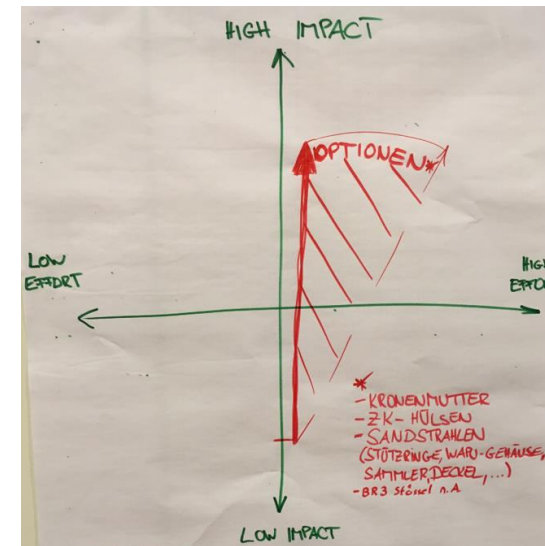 HIGH IMPACT
OPTIONEN*
LOW
EFFORT
HIGH
EFFO
*
- KRONENMUTTER
- ZK-HÜLSEN
- SANDSTRAHLEN
(STÜTZRINGE, WAPU-GEHÄUSE,
SAMMLER, DECKEL, ...)
- BR3 Stössel n.A.
LOW IMPACT